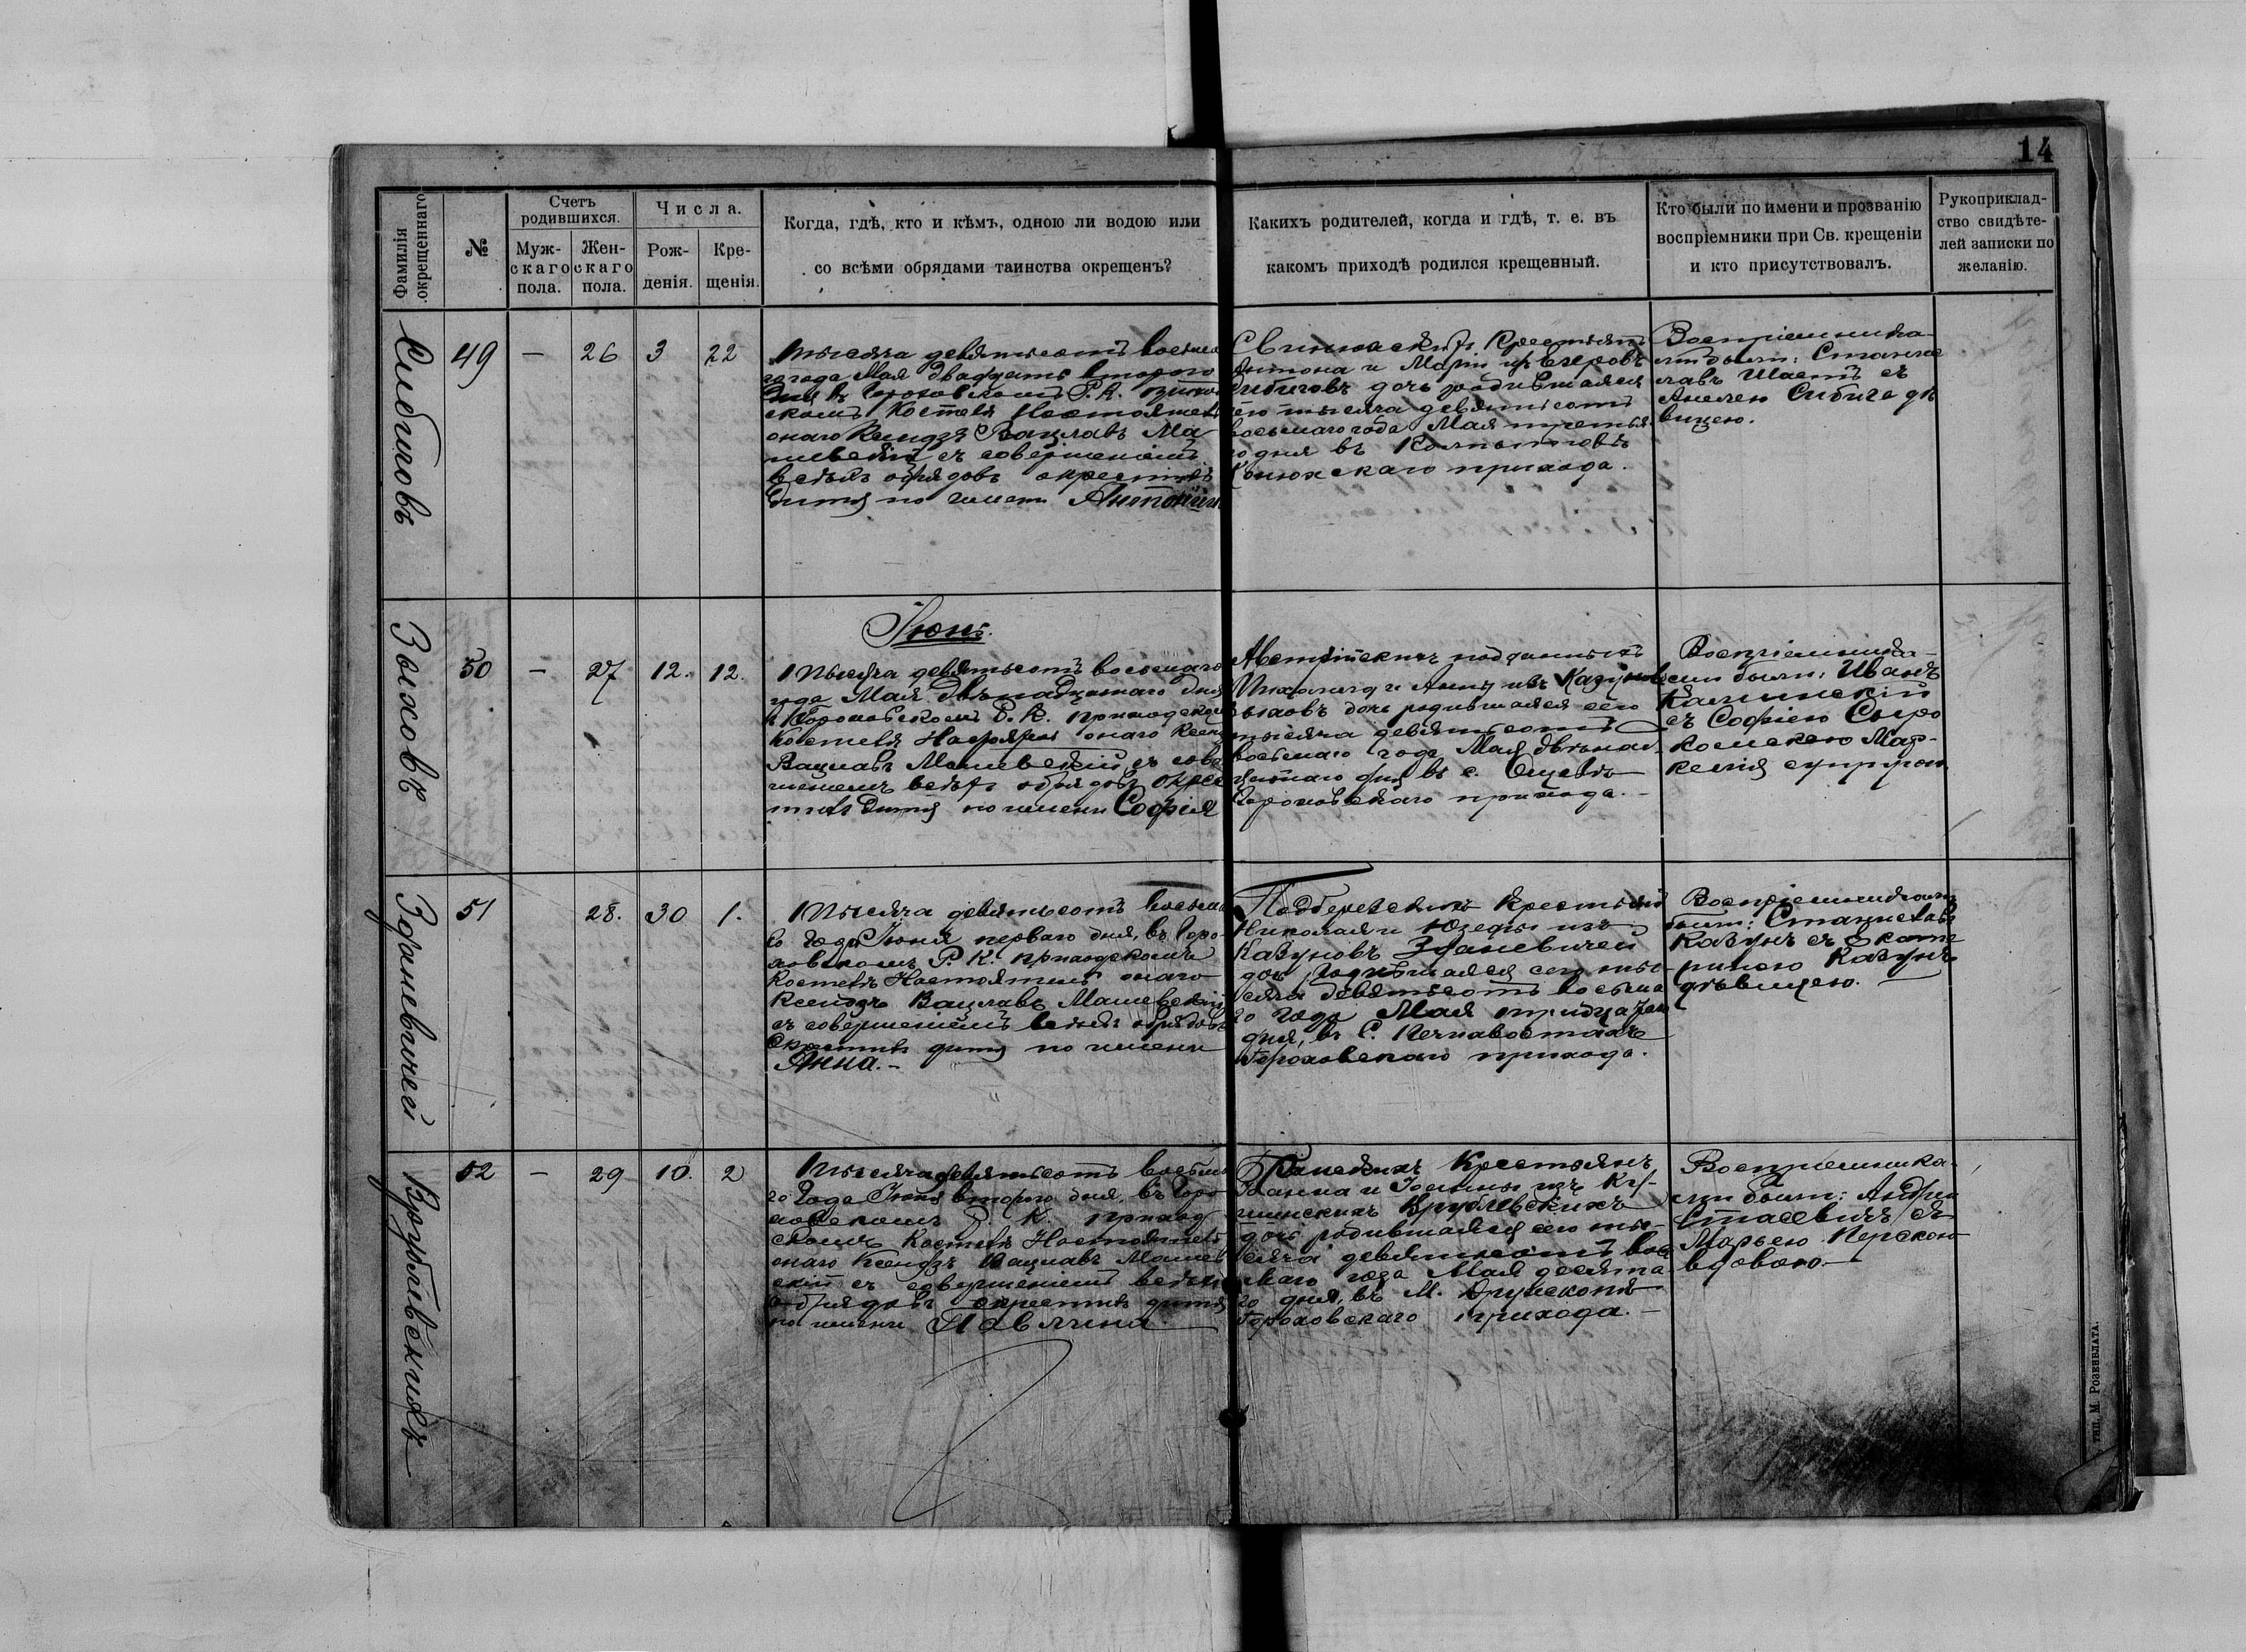 14
Фамилія окрещеннаго.
№
Счетъ родившихся.
Муж-скаго пола.
Жен-скаго пола.
Числа.
Рож-денія.
Кре-щенія.
Когда, гдѣ, кто и кѣмъ, одною ли водою или
со всѣми обрядами таинства окрещенъ?
Какихъ родителей, когда и гдѣ, т. е. въ
какомъ приходѣ родился крещенный.
Кто были по имени и прозванію
воспріемники при Св. крещеніи
и кто присутствовалъ.
Рукоприклад-
ство свидѣте-
лей записки по
желанію.
Сибиговъ
49
—
26
3
22
Тысяча девятьсотъ восьма
го года Мая двадцать второго
дня въ Гороховскомъ Р. К. приход
скомъ Костелѣ Настоятель
онаго Ксендзъ Вацлавъ Ма
шевскій съ совершеніемъ
всѣхъ обрядовъ окрестилъ
дитя по имени Антонина
Крестьянъ
Антона и Маріи изъ
Сибиговъ дочь родившаяся
сего тысяча девятьсотъ
восьмаго года Мая третья
го дня въ
прихода.
Воспріемника-
ми были: Станис
лавъ Шастъ съ
Анелею Сибига дѣ
вицею.
Зыховъ
Іюнь.
50
—
27
12.
12.
Тысяча девятьсотъ восьмаго
года Мая двѣнадцатаго дня
въ Гороховскомъ Р. К. приходском
Костелѣ Настоятель онаго Ксенд
Вацлавъ Машевскій съ совер
шеніемъ всѣхъ обрядовъ окрес
тилъ дитя по имени Софія
Австрійскихъ подданныхъ
Михаила и Анны изъ
Зыховъ дочь родившаяся сего
тысяча девятьсотъ
восьмаго года Мая двѣнад
цатаго дня въ с.
Гороховскаго прихода.—
Воспріемника-
ми были: Иванъ
Калинскій
съ Софіею Сыро
комскою
супругою
Зданевичей
51
28.
30
1.
Тысяча девятьсотъ восьма
го года Іюня перваго дня, въ Горо-
ховскомъ Р. К. приходскомъ
Костелѣ Настоятель онаго
Ксендзъ Вацлавъ Машевскій
съ совершеніемъ всѣхъ обрядовъ
окрестилъ дитя по имени
Анна.—
Подберезскихъ Крестьянъ
Николая и Юзефы изъ
Казуновъ Зданевичей
дочь родившаяся сего ты-
сяча девятьсотъ восьма
го года Мая
дня, въ С.
Гороховскаго прихода.
Воспріемниками
были: Станиславъ
Казунъ съ Екате
риною Казунъ
дѣвицею.—
Врублевскихъ
52
—
29
10.
2
Тысяча девятьсотъ восьма
го года Іюня второго дня, въ Горо
ховскомъ Р. К. приход
скомъ Костелѣ Настоятель
онаго Ксендзъ Вацлавъ Машев
скій съ совершеніемъ всѣхъ
обрядовъ окрестилъ дитя
по имени
Крестьянъ
и изъ
Врублевскихъ
дочь родившаяся сего ты-
сяча девятьсотъ вось
маго года Мая десята
го дня, въ М. Дружкополѣ
Гороховскаго прихода.—
Воспріемника-
ми были: Андрей
Стасевичъ съ
Марьею
вдовою.—
тип. М. Розенблата.